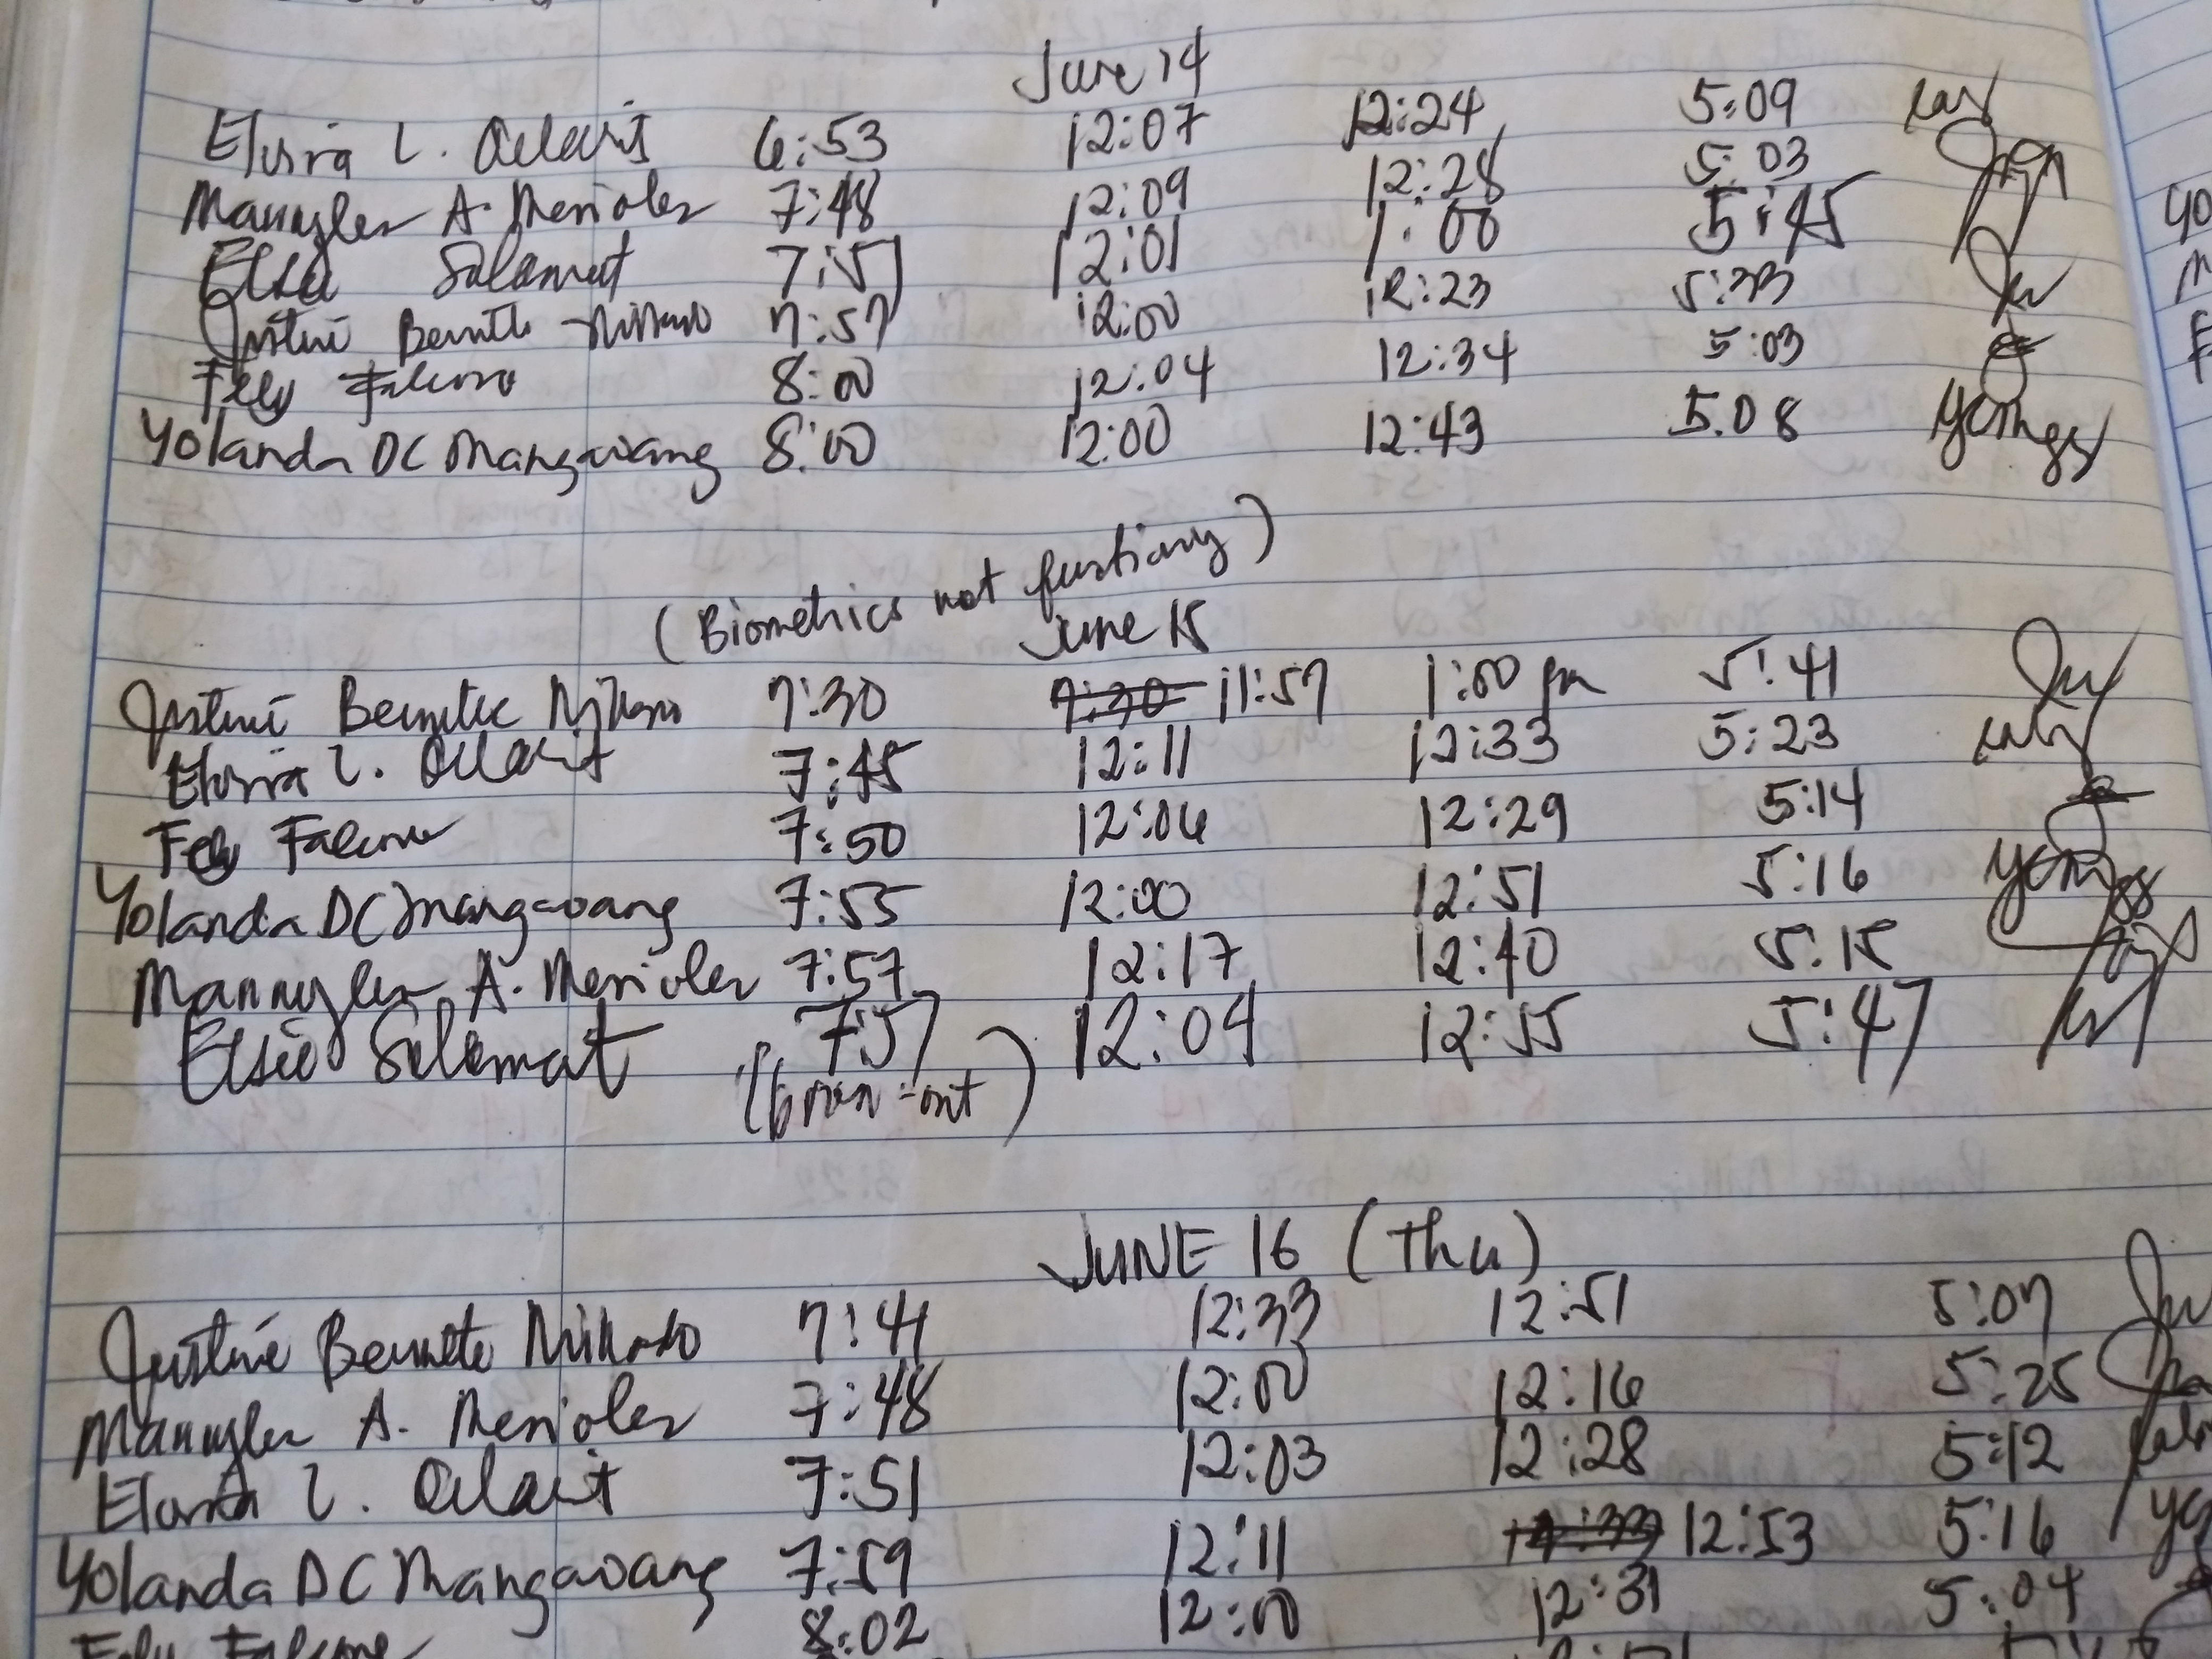 June 14
Elvira L. 6:53 12:07 12:24 5:09
Mannylen A. Merioles 7:48 12:09 12:28 5:03
Elsie Salamat 7:51 12:01 1:00 5:45
Justine Bennette Millano 7:57 12:00 12:23 5:33
Fely Falcone 8:00 12:04 12:34 5:03
Yolanda DC Mangawang 8:00 12:00 12:43 5.08
(Biometrics not
June 15
Justine Bennette 7:30 7:30 11:57 1:00 pm 5:41
Elvira L. 7:45 12:11 12:33 5:23
Fely Falcone 7:50 12:06 12:29 5:14
Yolanda DC Mangawang 7:55 12:00 12:51 5:16
Mannylen A. Merioles 7:57 12:17 12:40 5:15
Elsie Salamat 7:57 12:04 12:55 5:47
JUNE 16 (Thu)
Justine Bennette Millano 7:41 12:33 12:51 5:07
Mannylen A. Merioles 7:48 12:00 12:16 5:25
Elvira L. 7:51 12:03 12:28 5:12
Yolanda DC Mangawang 7:59 12:11 12:53 5:16
Fely Falcone 8:02 12:00 12:31 5:04